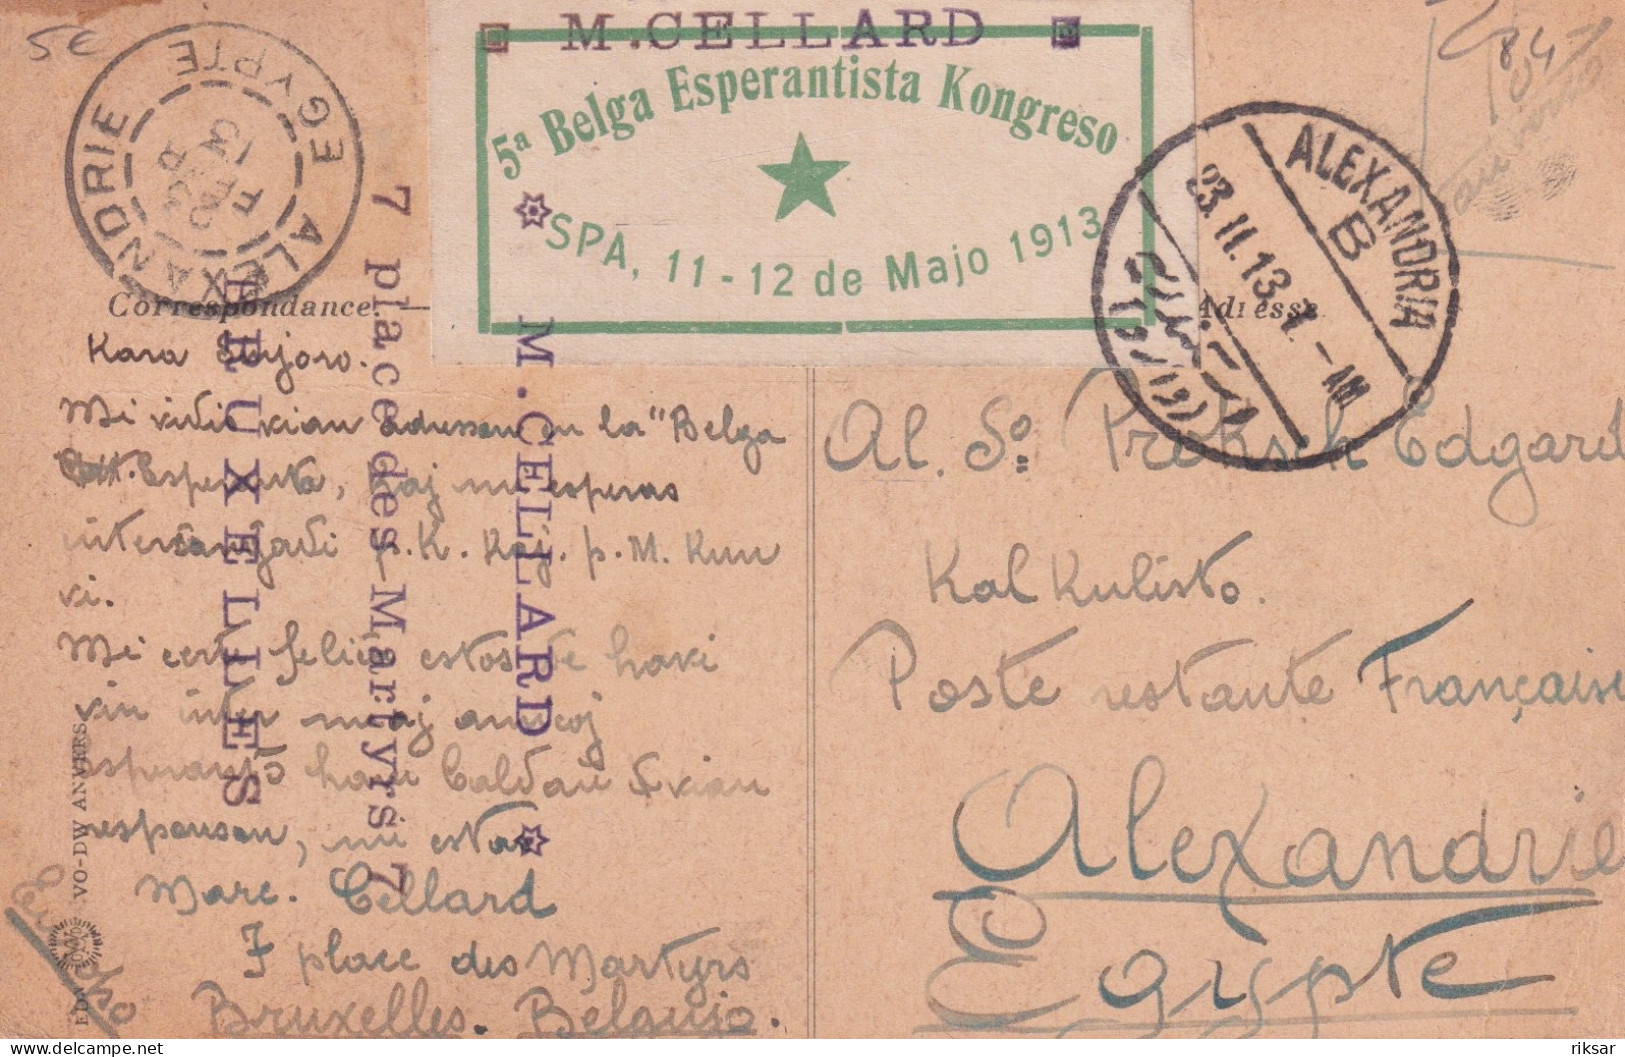 5€
M. CELLARD
5ª Belga Esperantista Kongreso
SPA, 11-12 de Majo 1913
ALEXANDRIE
EGYPTE
23
FEVR
13
ALEXANDRIA
B
23.II.13.
-AM
84
Correspondance.
Adresse
Kara Sinjoro.
Mi vidis vian adreson en la "Belga
Esperantisto, kaj mi esperas
p. K. Kaj. p. M. Kun
vi.
Mi estos havi
vin inter miaj amikoj
vian
responson, mi estas
Marc. Cellard
7 place des Martyrs
Bruxelles. Belgujo.
Al. Sº Pretzsch Edgard
Kalkulisto.
Poste restante Française
Alexandrie
Egypte
M. CELLARD
7 place des Martyrs 7
BRUXELLES
VO-DW ANVERS
riksar